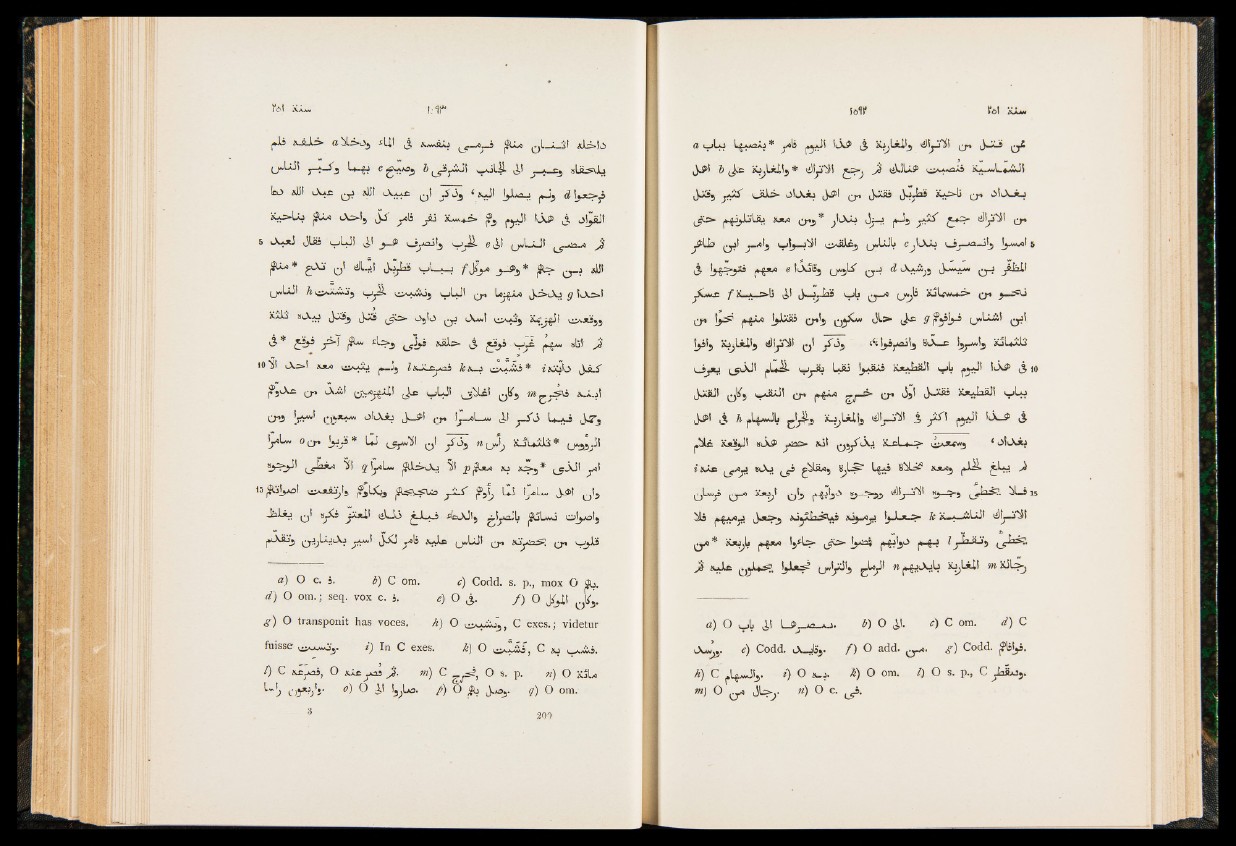 سنة ٢٥١
١٥٩٢
عمّن قتل من الاتراك والمغاربة فى هذا اليوم فامر *بنصبها بباب a
الشمّاسيّة فنُصبت هنالك ثم رجع الاتراك *والمغاربة على b اهل
بغداد من ناحية قطربّل فقتل من اهل بغداد خلق كثير وقتل
من الاتراك جمع كثير ولم يزل بندار *ومن معه يقاتلونهم حتى
5 امسوا وانصرف بندار c بالناس وغلقت الابواب وامر ابن طاهر
المظفّر بن سيسل ورشيد d بن كاوس وقائدا e معهم فتوجّهوا فى
نحو من خمسمائة فارس من باب قطربّل الى ناحية f عسكر
ابن اشناس فوافوهم g على حال سكون وامن فقتلوا منهم نحوا من
ثلثمائة واسروا عدّة وانصرفوا، وذكر ان الاتراك والمغاربة وافوا
10 فى هذا اليوم باب القطيعة فنقبوا نقبا بقرب الحمّام الذى يعرف
بباب القطيعة فقتل اول من خرج منهم من النقب وكان القتل
فى هذا اليوم اكثر فى الاتراك والمغاربة والجراح بالسهام h فى اهل
بغداد، وسمعت جماعة يذكرون انه حضر هذه الوقعة غلام
لم يبلغ الحلم ومعه مخلاة فيها حجارة ومقلاع فى يده يرمى عنه i
15 فلا يخطئ وجوه الاتراك ووجوه دوابّهم وان اربعة من فرسان
الاتراك الناشبة k جعلوا يرمونه فيخطئونه وجعل يرميهم فلا
يخطئ وتقطّر l بهم دوابّهم فمضوا حتى جاءوا معهم باربعة *من
رجّالة m المغاربة بايديهم n الرماح والتراس فجعلوا يحملون عليه ثم
a) O باب الى. b) O الى. c) C om. d) C
e) Codd. وقايد. f) O add. من. g) Codd. فوافاهم.
h) C والسهام. i) O به. k) O om. l) O s. p., C
m) O رجال من. n) O c. فى.
سنة ٢٥١
١٥٩٣
داخله اثنان منهم فرمى بنفسه فى الماء ودخلا a خلفه فلم
يلحقاه وعبر الى الجانب الشرقى b وصيّح c بهما وكبّر الناس
فرجعوا d ولم يصلوا اليه، وذكر ان عبيد الله بن عبد الله دعا
القوّاد فى هذا اليوم وهم خمسة نفر فامر كل واحد منهم بناحية
5 ثم مضى الناس الى e الحرب وانصرف هو الى الباب فقال لعبد
الله بن جهم *وهو موكّل f بباب قطربّل ايّاك ان تدع *منهم
احدا g يدخل منهزما من الباب ونشبت الحرب وتشتّت h الناس
ووقعت الهزيمة وثبت اسد بن داود حتى قُتل وقتل بيده ثلثة
ثم اتاه سهم غرب فوقع فى حلقه فولّى وجاء سهم آخر فوقع *فى
10 كفل دابّته i *فشبّت به k فصرعته l ولم يثبت معه احد الّا
ابنه فجُرح m وكان اغلاق الباب على المنهزمين اشدّ من عدوّهم
وحُمل فيما ذكر الى سامرّا من اهل بغداد سبعون اسيرا ومن
الرؤوس *ثلثمائة رأس n وذكر ان الاسرى لمّا *قربوا من o سامرّا
امر الذى *وجّه به معهم p الّا يدخلهم سامرّا q الّا مغطّى الوجوه
15 وان اهل سامرّا لمّا رأوهم كثر ضجيجهم وبكاؤهم وارتفعت اصواتهم
واصوات نسائهم بالصراخ والدعاء فبلغ ذلك المعتزّ فكره ان يغلظ
قلوب من بحضرته من الناس عليه فامر لكلّ اسير بدينارين وتقدّم
a) O c. ف. b) C om. c) Codd. s. p., mox O بهم.
d) O om.; seq. vox c. ف. e) O فى. f) O وكان الموكل.
g) O transponit has voces. h) O ونشبت, C exes.; videtur
fuisse i) In C exes. k) O فشبّت, C به
l) C فصرعه, O m) C فخرج, O s. p. n) O
o) O الى p) O بهم وصل. q) O om.
3
200